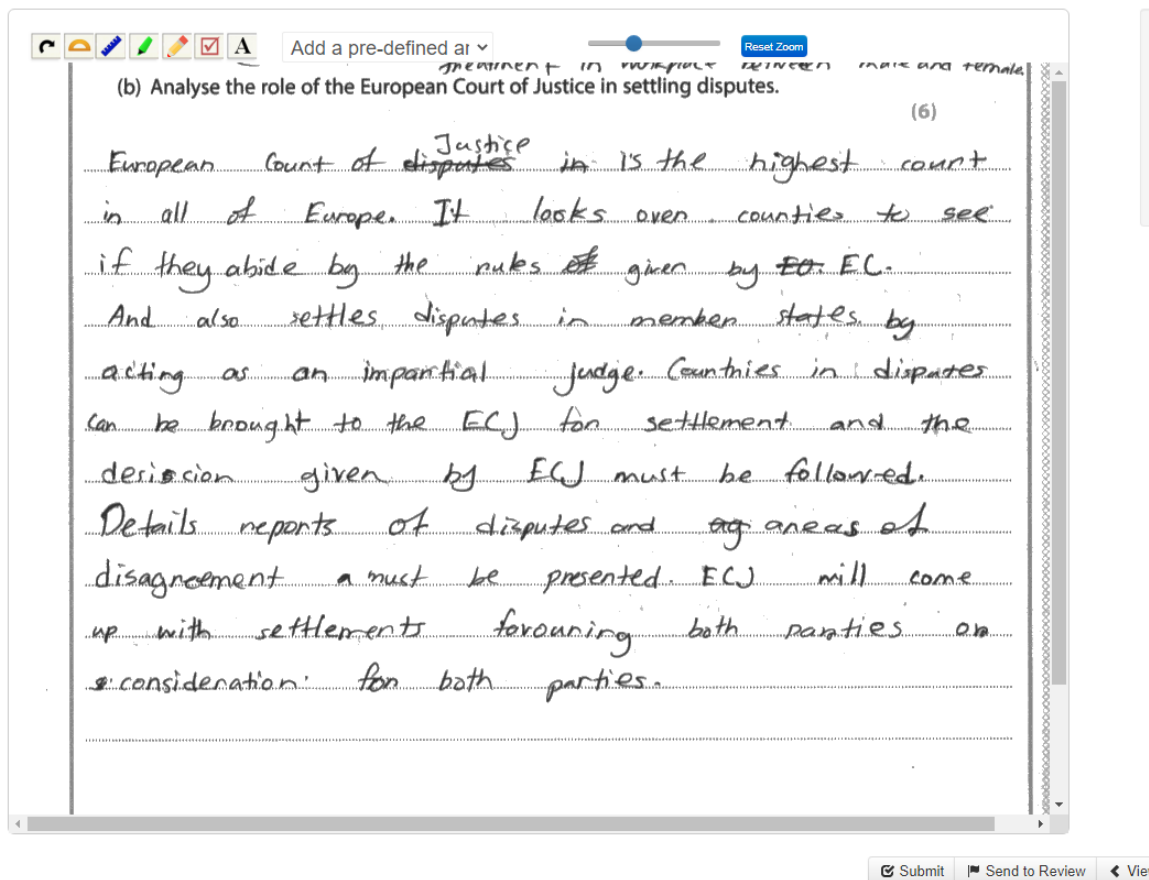 A
Add a pre-defined ar
Reset Zoom
treatment in workplace between male and female.
(b) Analyse the role of the European Court of Justice in settling disputes.
(6)
Justice
European Count of disputes in is the highest count
in all of Europe. It looks over counties to see
if they abide by the rules of given by EO. EC.
And also settles disputes in member states by
acting as an impartial judge. Countries in disputes
can be brought to the ECJ for settlement and the
desiscion given by ECJ must be followed.
Details reports of disputes and ag areas of
disagreement a must be presented. ECJ will come
up with settlements favouring both parties or
consideration for both parties.
Submit
Send to Review
Vie